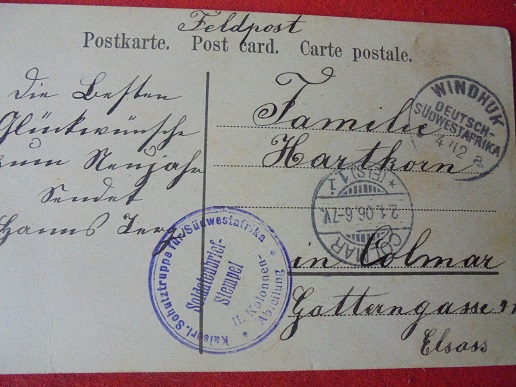 Feldpost
Postkarte. Post card. Carte postale.
Die Besten
Glückwünsche
zum Neujahr
Sendet
Hanns
Familie
Hartkorn
in Colmar
Gatterngasse
Elsass
WINDHUK
DEUTSCH-
SÜDWESTAFRIKA
4/12
COLMAR
(ELS) 1
2.1.06.6-7V.
Kaiserl. Schutztruppe für Südwestafrika
Soldatenbrief-
Stempel
II. Kolonnen-
Abteilung